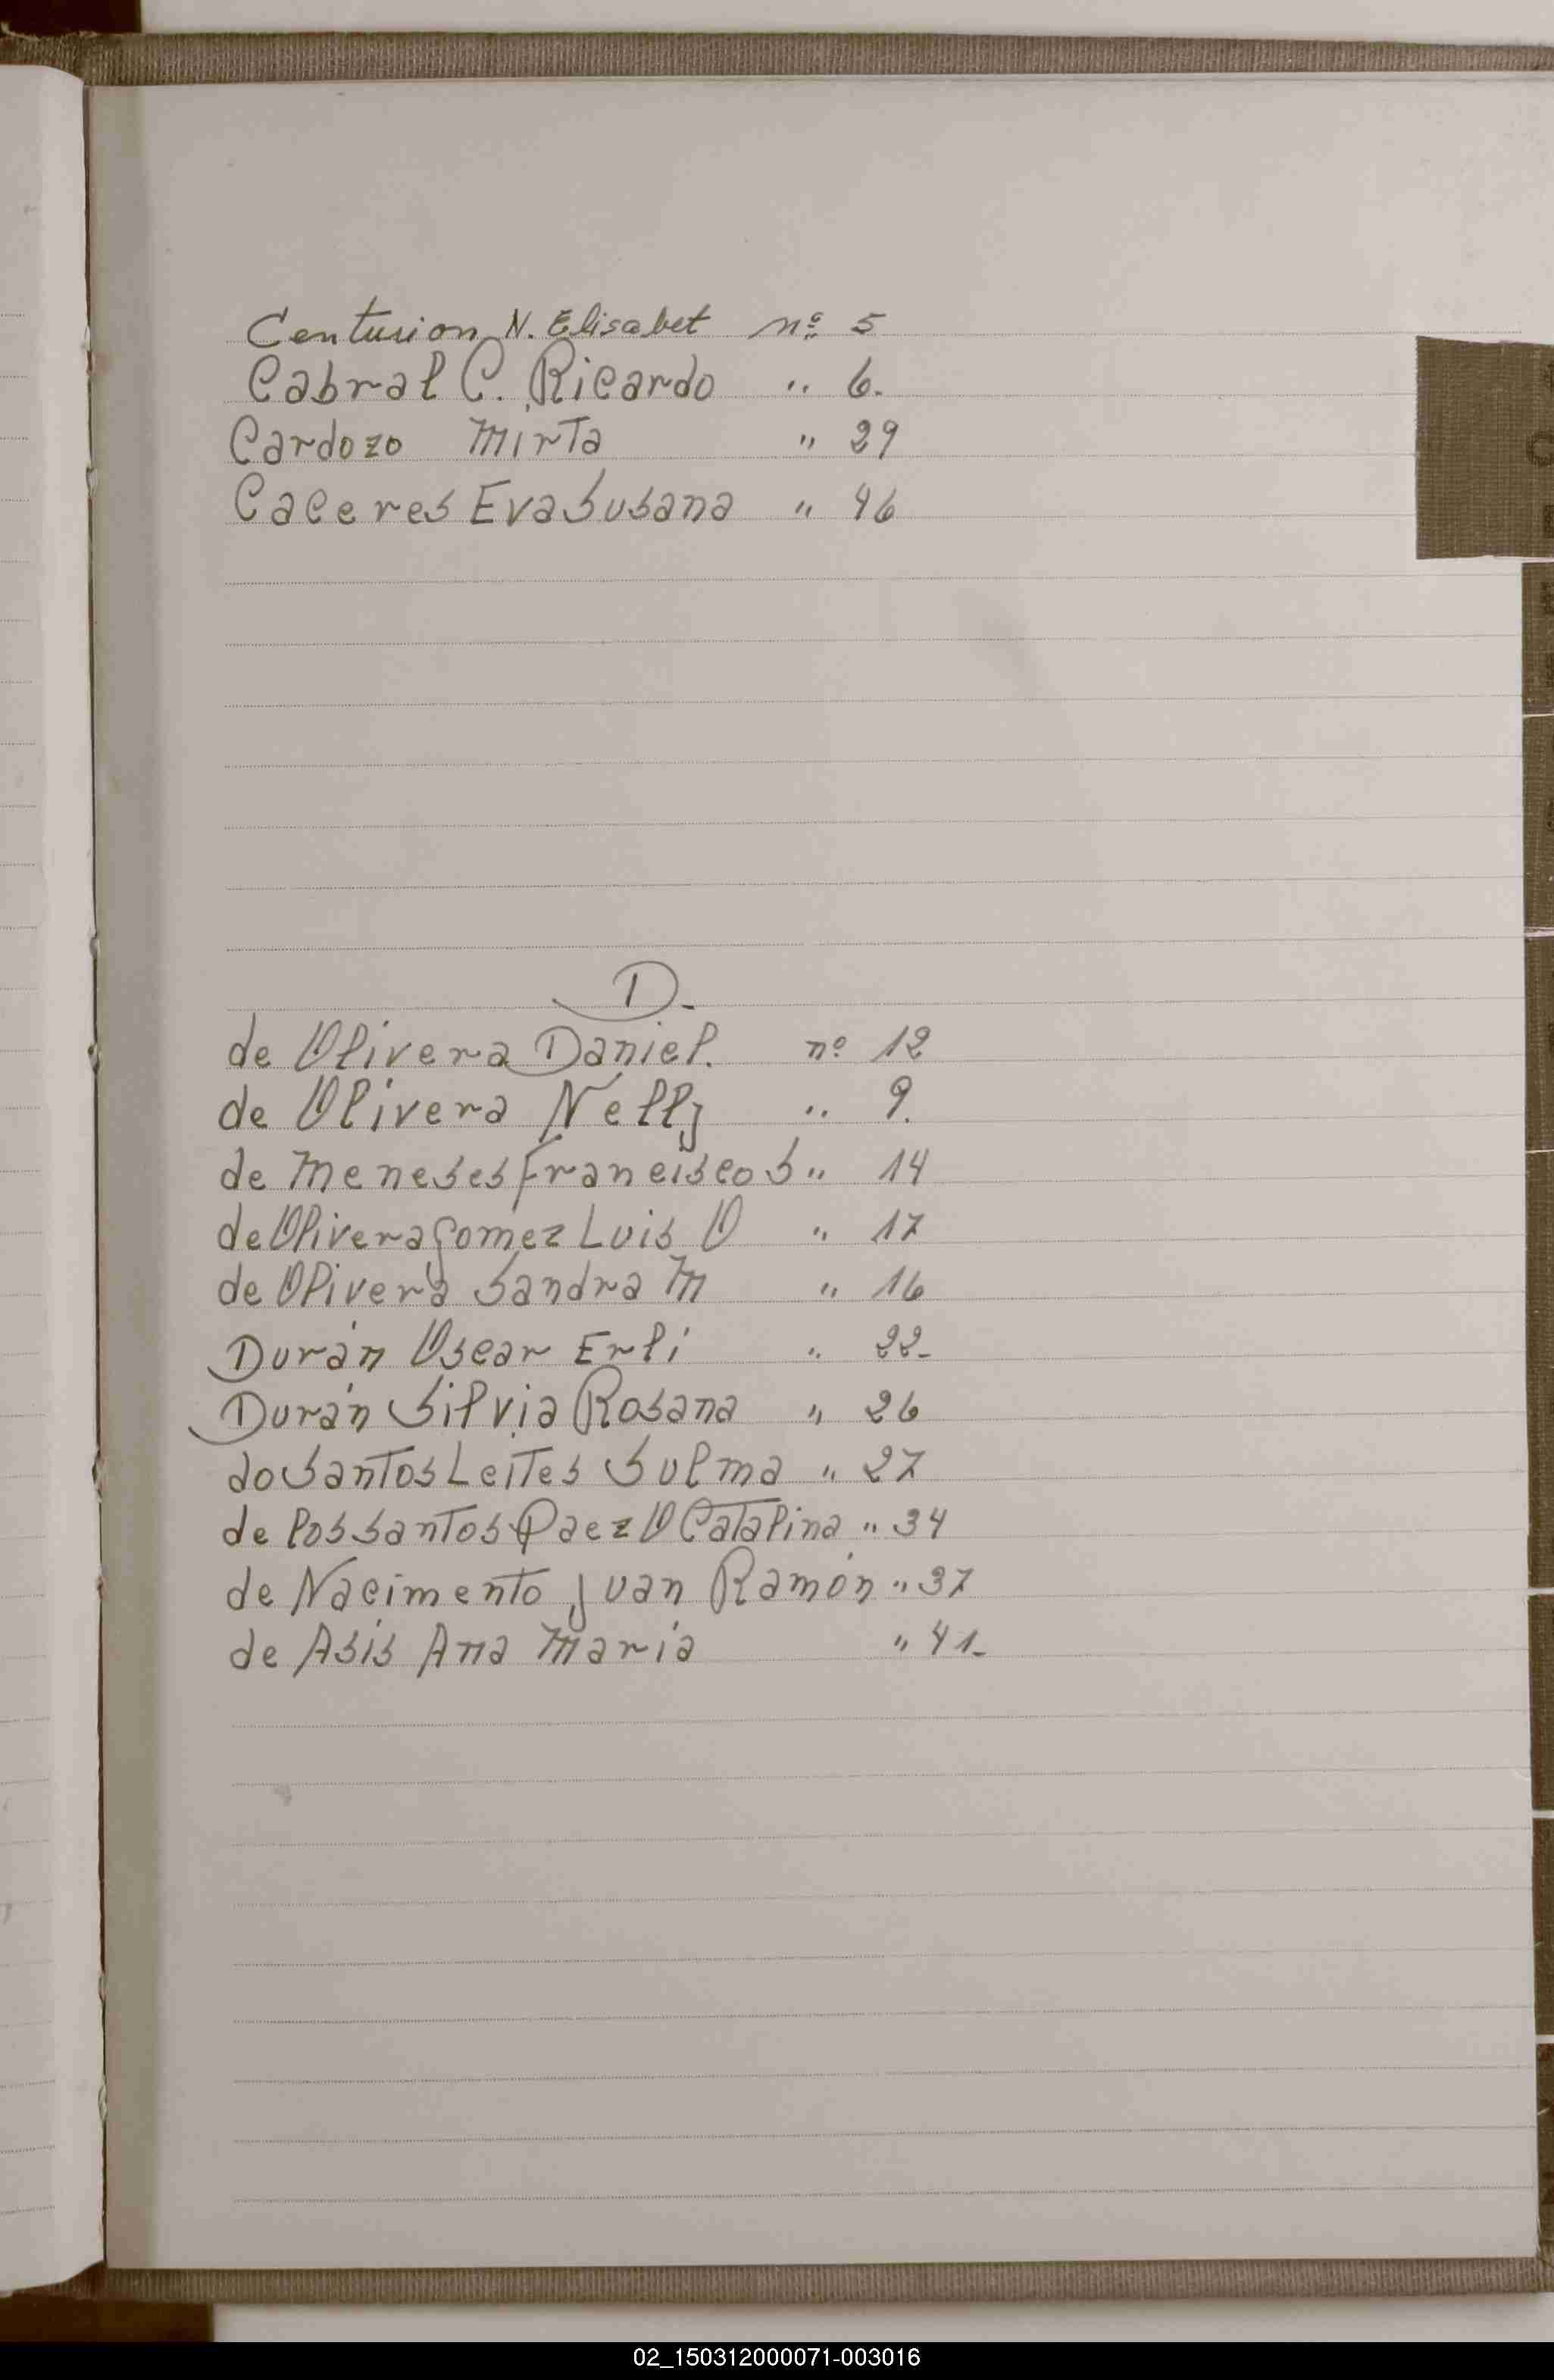 Centurion N. Elisabet nº 5
Cabral C. Ricardo " 6.
Cardozo Mirta " 29
Caceres Eva Susana " 46
D.
de Olivera Daniel. nº 12
de Olivera Nelly " 9.
de Meneses Francisco S " 14
de Olivera Gomez Luis O " 17
de Olivera Sandra M " 16
Durán Oscar Erli " 22-
Durán Silvia Rosana " 26
do Santos Leites Sulma " 27
de los Santos Paez O Catalina " 34
de Nacimento Juan Ramón " 37
de Asis Ana Maria " 41-
02_150312000071-003016